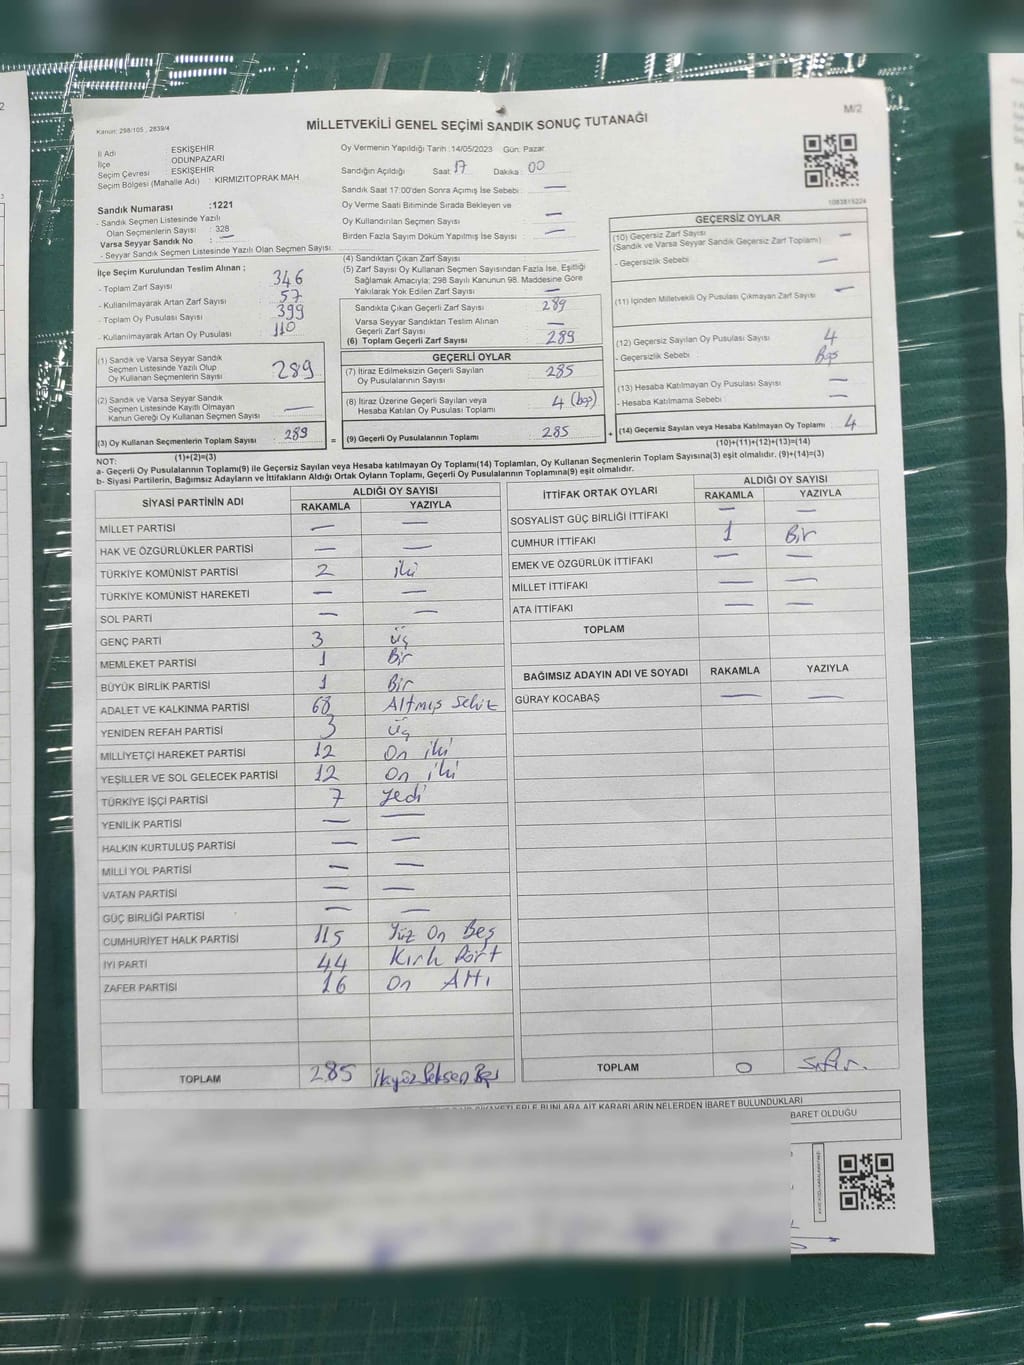 M/2
Kanun: 298/105 , 2839/4
MİLLETVEKİLİ GENEL SEÇİMİ SANDIK SONUÇ TUTANAĞI
İl Adı ESKİŞEHİR
İlçe ODUNPAZARI
Seçim Çevresi ESKİŞEHİR
Seçim Bölgesi (Mahalle Adı) : KIRMIZITOPRAK MAH.
Sandık Numarası :1221
- Sandık Seçmen Listesinde Yazılı
Olan Seçmenlerin Sayısı : 328
Varsa Seyyar Sandık No : —
- Seyyar Sandık Seçmen Listesinde Yazılı Olan Seçmen Sayısı:
Oy Vermenin Yapıldığı Tarih :14/05/2023 Gün: Pazar
Sandığın Açıldığı Saat: 17 Dakika : 00
Sandık Saat 17:00'den Sonra Açımış İse Sebebi : —
Oy Verme Saati Bitiminde Sırada Bekleyen ve
Oy Kullandırılan Seçmen Sayısı : —
Birden Fazla Sayım Döküm Yapılmış İse Sayısı : —
1083815224
İlçe Seçim Kurulundan Teslim Alınan ;
- Toplam Zarf Sayısı : 346
- Kullanılmayarak Artan Zarf Sayısı : 57
- Toplam Oy Pusulası Sayısı : 399
- Kullanılmayarak Artan Oy Pusulası : 110
(1) Sandık ve Varsa Seyyar Sandık
Seçmen Listesinde Yazılı Olup
Oy Kullanan Seçmenlerin Sayısı : 289
(2) Sandık ve Varsa Seyyar Sandık
Seçmen Listesinde Kayıtlı Olmayan
Kanun Gereği Oy Kullanan Seçmen Sayısı : —
(3) Oy Kullanan Seçmenlerin Toplam Sayısı : 289
(1)+(2)=(3)
(4) Sandıktan Çıkan Zarf Sayısı :
(5) Zarf Sayısı Oy Kullanan Seçmen Sayısından Fazla İse, Eşitliği
Sağlamak Amacıyla; 298 Sayılı Kanunun 98. Maddesine Göre
Yakılarak Yok Edilen Zarf Sayısı : —
Sandıkta Çıkan Geçerli Zarf Sayısı : 289
Varsa Seyyar Sandıktan Teslim Alınan
Geçerli Zarf Sayısı : —
(6) Toplam Geçerli Zarf Sayısı : 289
GEÇERLİ OYLAR
(7) İtiraz Edilmeksizin Geçerli Sayılan
Oy Pusulalarının Sayısı : 285
(8) İtiraz Üzerine Geçerli Sayılan veya
Hesaba Katılan Oy Pusulası Toplamı : 4 (boş)
= (9) Geçerli Oy Pusulalarının Toplamı : 285
GEÇERSİZ OYLAR
(10) Geçersiz Zarf Sayısı : —
(Sandık ve Varsa Seyyar Sandık Geçersiz Zarf Toplamı)
- Geçersizlik Sebebi : —
(11) İçinden Milletvekili Oy Pusulası Çıkmayan Zarf Sayısı : —
(12) Geçersiz Sayılan Oy Pusulası Sayısı : 4
- Geçersizlik Sebebi : Boş
(13) Hesaba Katılmayan Oy Pusulası Sayısı : —
- Hesaba Katılmama Sebebi : —
+ (14) Geçersiz Sayılan veya Hesaba Katılmayan Oy Toplamı : 4
(10)+(11)+(12)+(13)=(14)
NOT:
a- Geçerli Oy Pusulalarının Toplamı(9) ile Geçersiz Sayılan veya Hesaba katılmayan Oy Toplamı(14) Toplamları, Oy Kullanan Seçmenlerin Toplam Sayısına(3) eşit olmalıdır. (9)+(14)=(3)
b- Siyasi Partilerin, Bağımsız Adayların ve İttifakların Aldığı Ortak Oyların Toplamı, Geçerli Oy Pusulalarının Toplamına(9) eşit olmalıdır.
SİYASİ PARTİNİN ADI ALDIĞI OY SAYISI
RAKAMLA YAZIYLA
MİLLET PARTİSİ — —
HAK VE ÖZGÜRLÜKLER PARTİSİ — —
TÜRKİYE KOMÜNİST PARTİSİ 2 iki
TÜRKİYE KOMÜNİST HAREKETİ — —
SOL PARTİ — —
GENÇ PARTİ 3 üç
MEMLEKET PARTİSİ 1 Bir
BÜYÜK BİRLİK PARTİSİ 1 Bir
ADALET VE KALKINMA PARTİSİ 68 Altmış Sekiz
YENİDEN REFAH PARTİSİ 3 üç
MİLLİYETÇİ HAREKET PARTİSİ 12 On iki
YEŞİLLER VE SOL GELECEK PARTİSİ 12 On iki
TÜRKİYE İŞÇİ PARTİSİ 7 yedi
YENİLİK PARTİSİ — —
HALKIN KURTULUŞ PARTİSİ — —
MİLLİ YOL PARTİSİ — —
VATAN PARTİSİ — —
GÜÇ BİRLİĞİ PARTİSİ — —
CUMHURİYET HALK PARTİSİ 115 Yüz On Beş
İYİ PARTİ 44 Kırk Dört
ZAFER PARTİSİ 16 On Altı
TOPLAM 285 İkiyüz Seksen Beş
İTTİFAK ORTAK OYLARI ALDIĞI OY SAYISI
RAKAMLA YAZIYLA
SOSYALİST GÜÇ BİRLİĞİ İTTİFAKI — —
CUMHUR İTTİFAKI 1 Bir
EMEK VE ÖZGÜRLÜK İTTİFAKI — —
MİLLET İTTİFAKI — —
ATA İTTİFAKI — —
TOPLAM
BAĞIMSIZ ADAYIN ADI VE SOYADI RAKAMLA YAZIYLA
GÜRAY KOCABAŞ — —
TOPLAM 0 Sıfır.
BUNLARA AİT KARARLARIN NELERDEN İBARET BULUNDUKLARI
BARET OLDUĞU